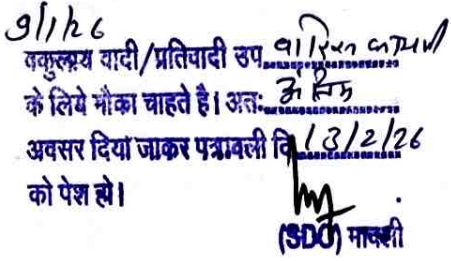 9/1/26
वकुलाय वादी/प्रतिवादी उप
के लिये मौका चाहते है। अतः अंतिम
अवसर दिया जाकर पत्रावली दि 13/2/26
को पेश हो।
(SDO) मावली